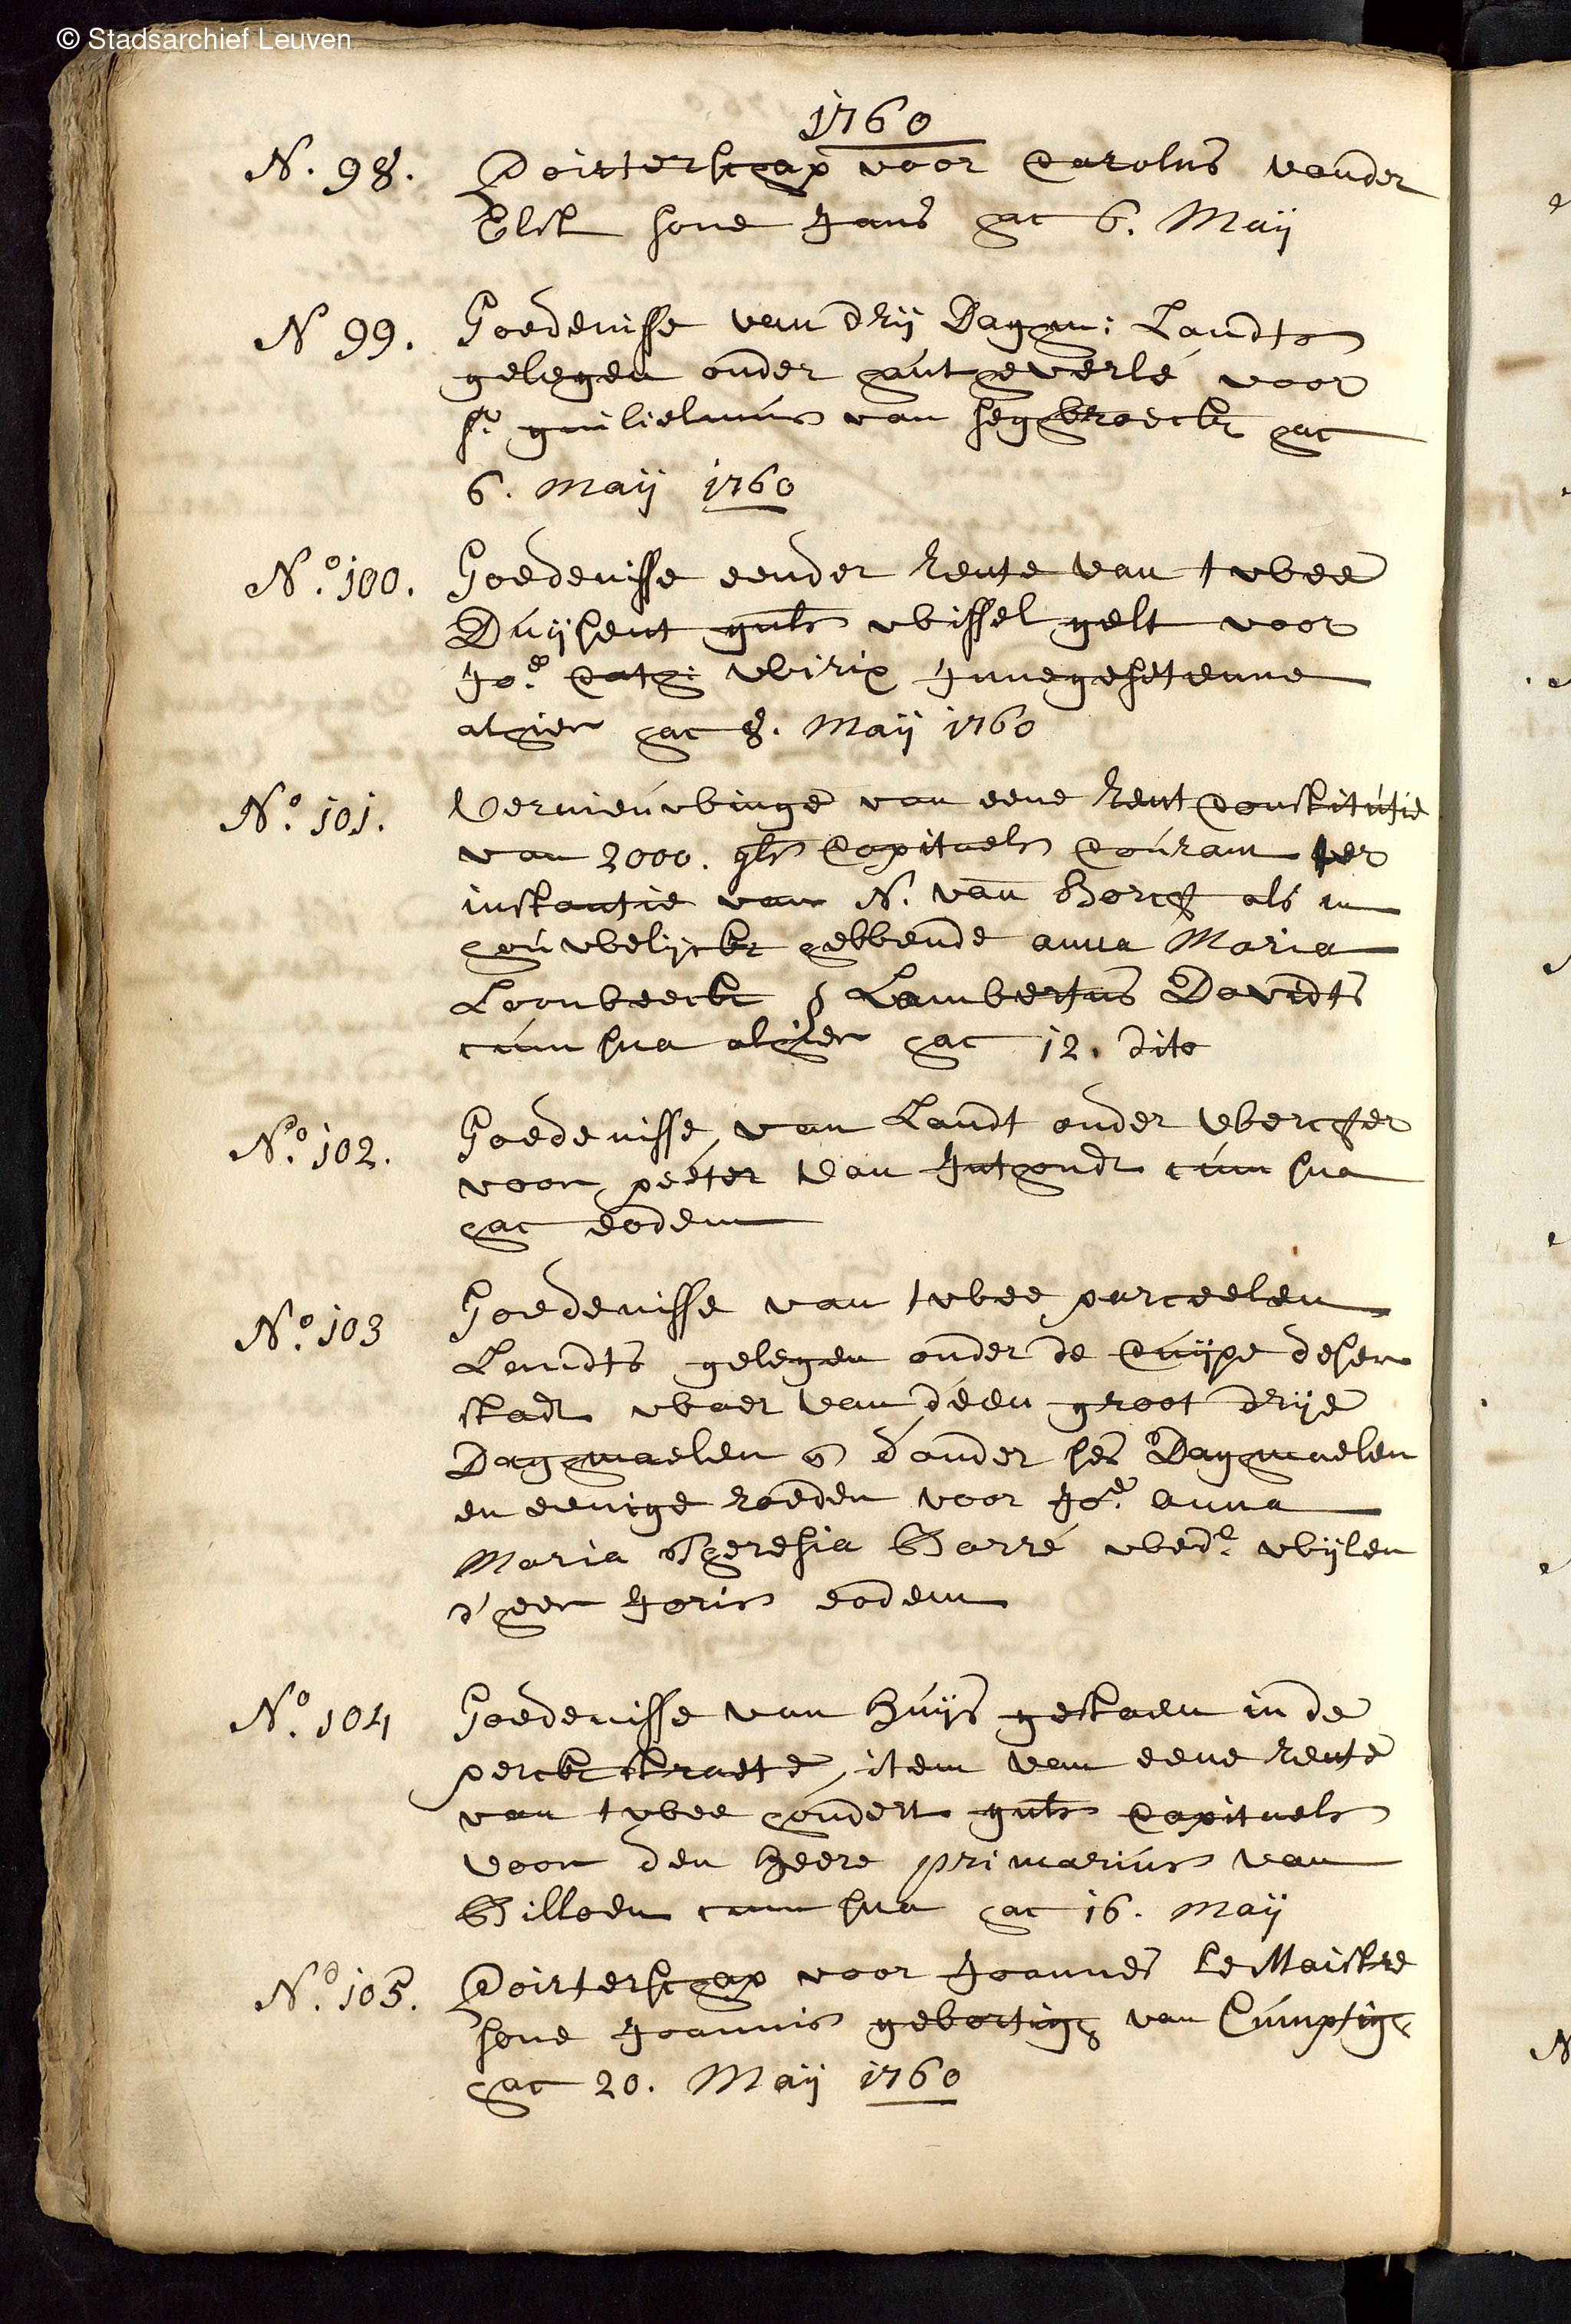 © Stadsarchief Leuven
1760
N. 98. Poirterschap voor Carolus vander
Elst sone Jans hac 6. Maij
N 99. Goedenisse van drij Dagm: Landts
gelegen onder haut heverlé voor
sr. guilielmus van segbroeck hac
6. Maij 1760
N.o 100. Goedenisse eender Rente van twee
Duijsent guls wissel gelt voor
Joe. Cath: Wirix Innegesetenne
alhier hac 8. Maij 1760
N.o 101. Vernieuwinge van eene Rent Constitutie
van 2000. gls Capitaels Courant ter
instantie van N. van Borch als in
houwelijck hebbende anna Maria
Loonbeeck & Lambertus Davidts
cum sua alhier hac 12. dito
N.o 102. Goedenisse van Landt onder Wercher
voor peeter van Inthoudt cum sua
hac eodem
N.o 103 Goedenisse van twee parceelen
Landts gelegen onder de Cuijpe deser
stadt waer van d'een groot drije
Daghmaelen & d'ander ses Daghmaelen
en eenige roeden voor Joe. anna
Maria Theresia Barré wede. wijlen
d'heer Joris eodem
N.o 104 Goedenisse van Huijs gestaen in de
perckstraete, item van eene Rente
van twee hondert guls Capitaels
voor den Heere primarius van
Billoen cum sua hac 16. Maij
N.o 105. Poirterschap voor Joannes le Maistre
sone Joannis gebortigh van Cumptigh
hac 20. Maij 1760